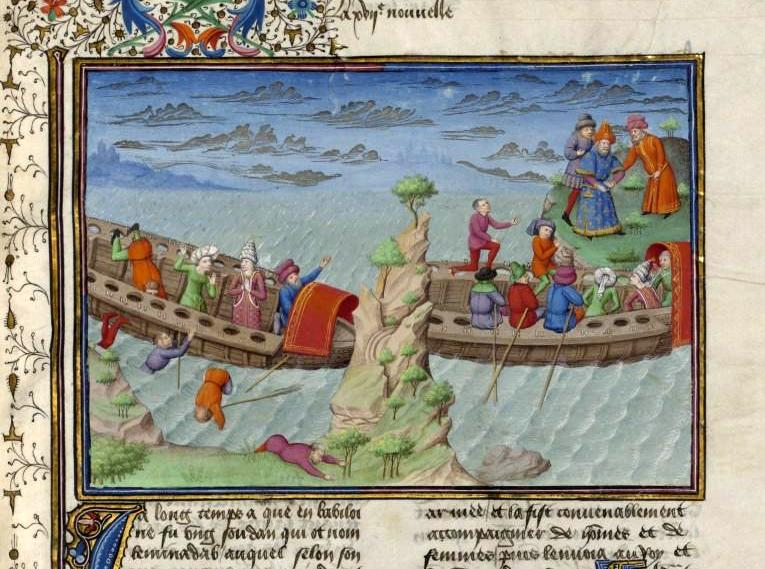 la xvii^e nouvelle
Ja long temps a que en babiloi
ne fu ung soudan qui ot nom
beminadab auquel selon son
armee et la fist convenablement
acompaignier de homes et de
femmes puis lenvoia au roy et